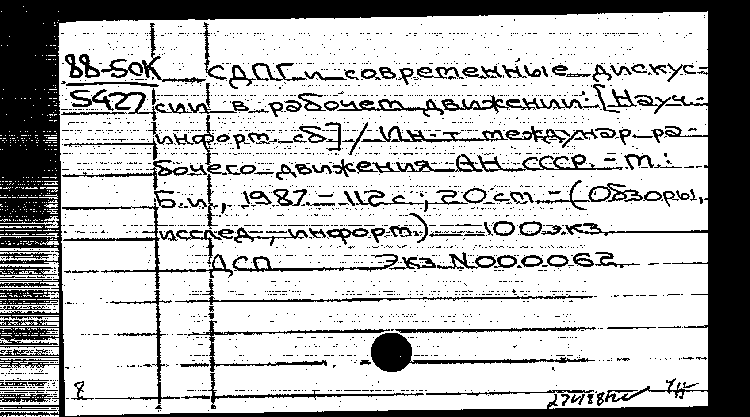 88-50К СДПГ и современные дискус-
5427 сии в рабочем движении: [Науч.-
информ. сб] / Ин-т междунар. ра-
бочего движения АН СССР. - М.:
Б.и., 1987. - 112 с.; 20 см. - (Обзоры,
исслед., информ.) 100 экз.
ДСП Экз. N000062.
8